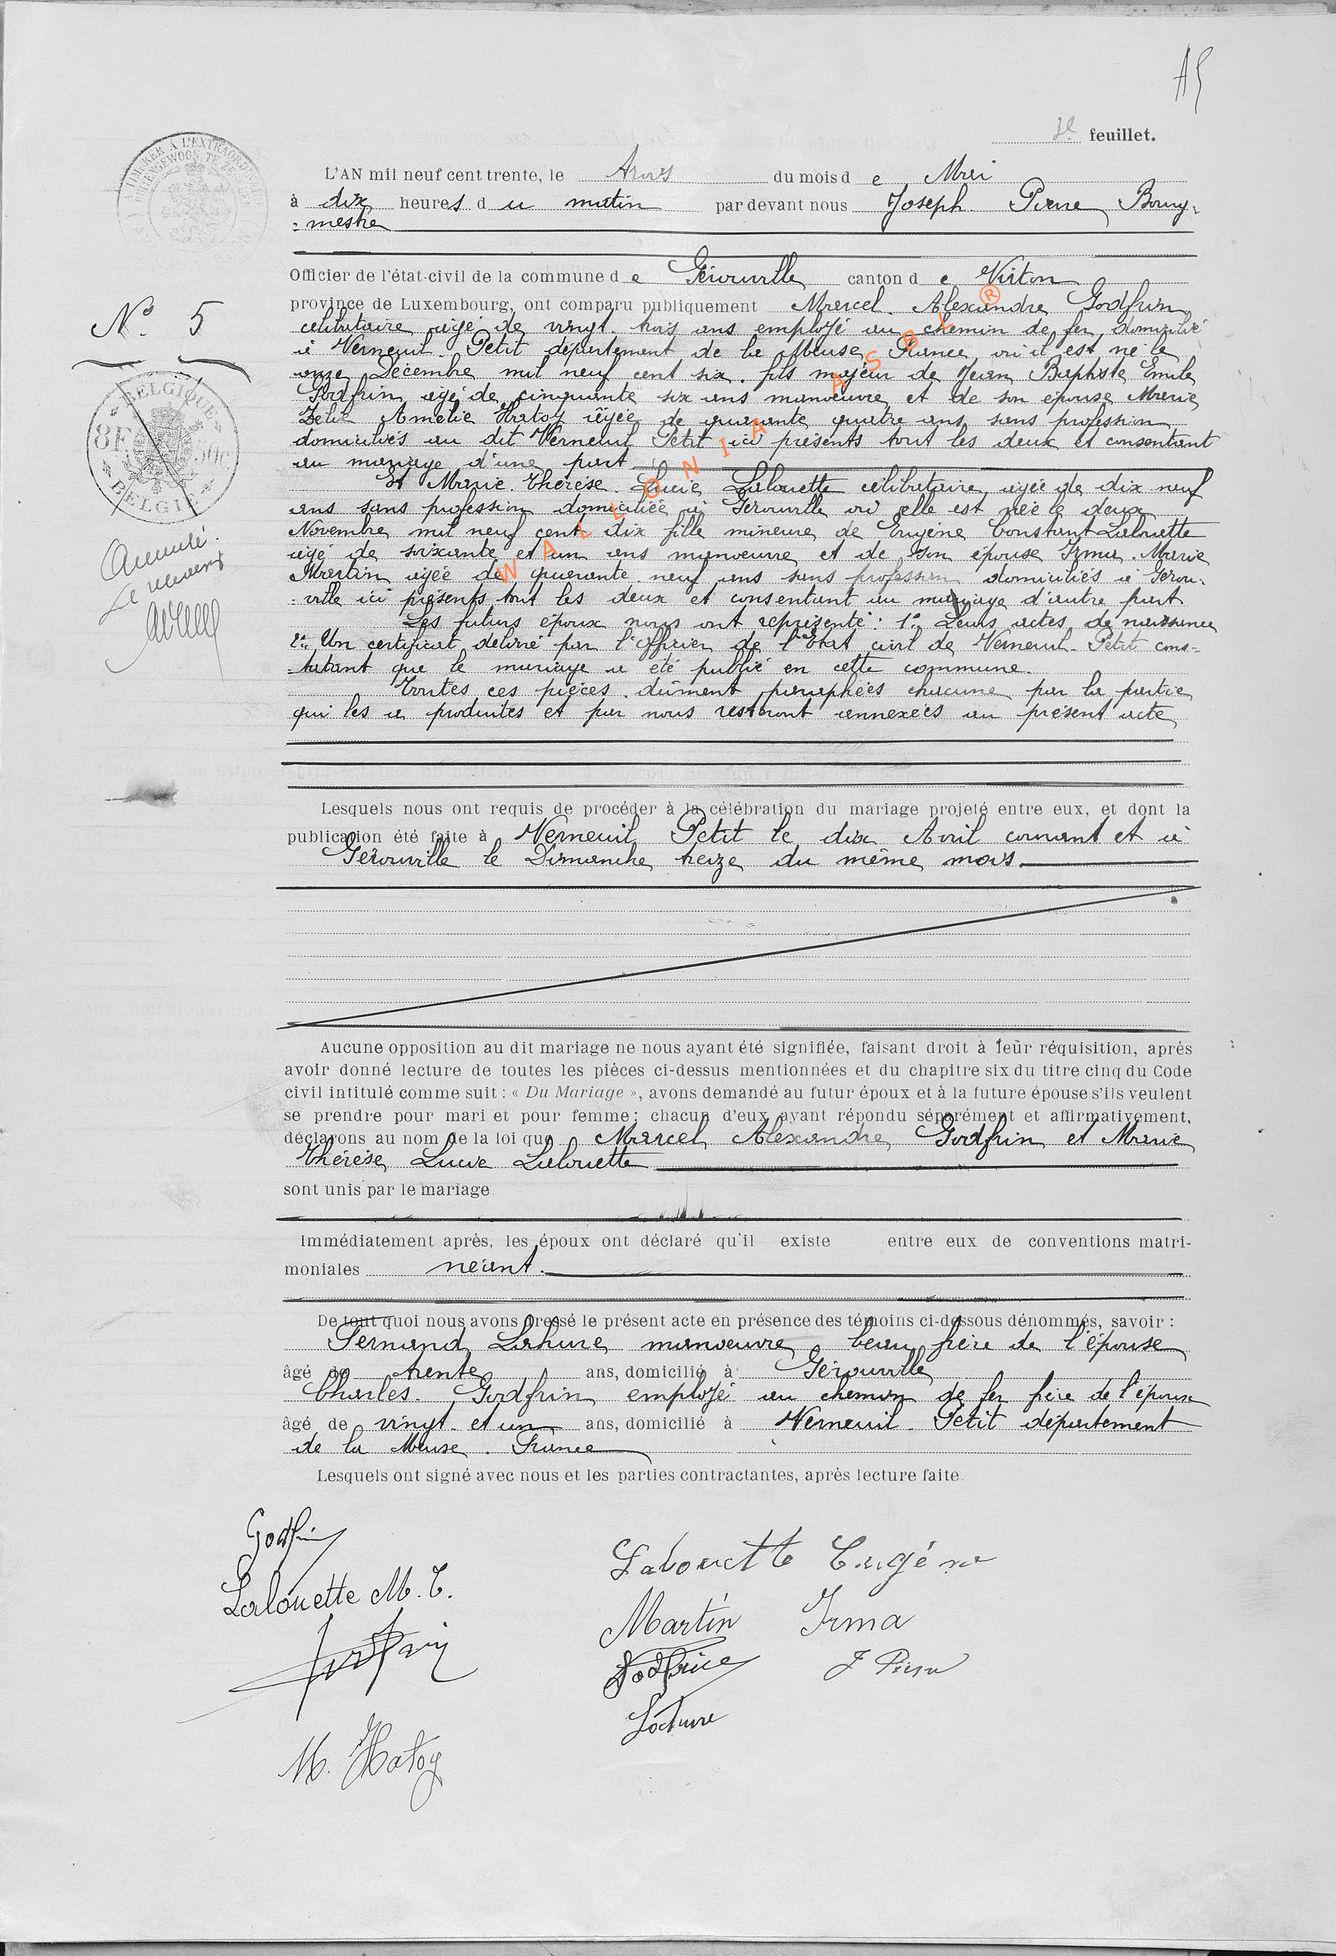 A5
3e feuillet.
L'AN mil neuf cent trente, le trois du mois d e Mai
à dix heures d u matin par devant nous Joseph Pierre, Bourg-
: mestre
Officier de l'état-civil de la commune d e Gérouville canton d e Virton
N° 5
province de Luxembourg, ont comparu publiquement Marcel Alexandre Godfrin
célibataire âgé de vingt trois ans employé au chemin de fer domicilié
à Verneuil-Petit département de la Meuse, France, où il est né le
onze Décembre mil neuf cent six, fils majeur de Jean Baptiste Emile
Godfrin âgé de cinquante six ans manœuvre et de son épouse Marie
Zélie Amélie Hatoy âgée de quarante quatre ans sans profession
domiciliés au dit Verneuil Petit ici présents tout les deux et consentant
au mariage d'une part
Et Marie Thérèse Lucie Lalouette célibataire, âgée de dix neuf
ans sans profession domiciliée à Gérouville où elle est née le deux
Novembre mil neuf cent dix fille mineure de Eugène Constant Lalouette
âgé de soixante et un ans manœuvre et de son épouse Irma Marie
Martin âgée de quarante neuf ans sans profession domiciliés à Gérou-
: ville ici présents tout les deux et consentant au mariage d'autre part
Les futurs époux nous ont représenté : 1° Leurs actes de naissance
2° Un certificat délivré par l'officier de l'Etat civil de Verneuil-Petit cons-
tatant que le mariage a été publié en cette commune.
Toutes ces pièces dûment paraphées chacune par la partie
qui les a produites et par nous resteront annexées au présent acte
BELGIQUE
8F 50c
BELGIE
Annulé.
Le receveur
WALLONIA ASBL ®
Lesquels nous ont requis de procéder à la célébration du mariage projeté entre eux, et dont la
publication été faite à Verneuil Petit le dix Avril courant et à
Gérouville le Dimanche treize du même mois
Aucune opposition au dit mariage ne nous ayant été signifiée, faisant droit à leur réquisition, après
avoir donné lecture de toutes les pièces ci-dessus mentionnées et du chapitre six du titre cinq du Code
civil intitulé comme suit : « Du Mariage », avons demandé au futur époux et à la future épouse s'ils veulent
se prendre pour mari et pour femme; chacun d'eux ayant répondu séparément et affirmativement,
déclarons au nom de la loi que Marcel Alexandre Godfrin et Marie
Thérèse Lucie Lalouette
sont unis par le mariage
Immédiatement après, les époux ont déclaré qu'il existe entre eux de conventions matri-
moniales néant.
De tout quoi nous avons dressé le présent acte en présence des témoins ci-dessous dénommés, savoir :
Fernand Lahure manœuvre beau frère de l'épouse
âgé de trente ans, domicilié à Gérouville
Charles Godfrin employé au chemin de fer frère de l'époux
âgé de vingt et un ans, domicilié à Verneuil-Petit département
de la Meuse. France
Lesquels ont signé avec nous et les parties contractantes, après lecture faite.
Godfrin
Lalouette Eugène
Lalouette M. T.
Martin Irma
Godfrin
Godfrin
J Pierre
Lahure
M. Hatoy